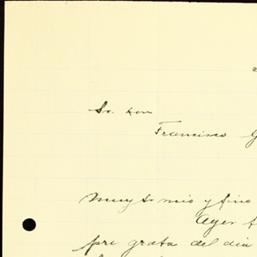 Sr. Don
Francisco G
Muy Sr mio y fino
Ayer
pre grata del dia